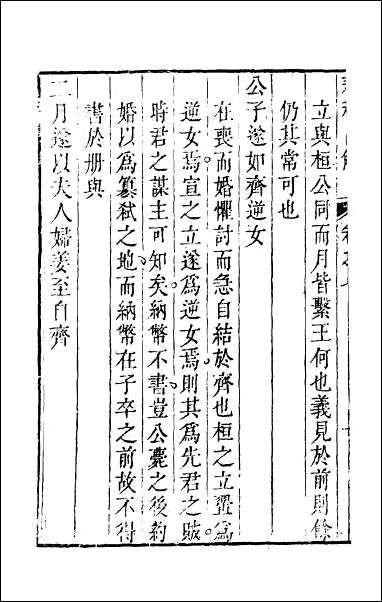 立與桓公同而月皆繫王何也義見於前則餘
仍其常可也
公子遂如齊逆女
在喪而婚懼討而急自結於齊也桓之立翬爲
逆女焉宣之立遂爲逆女焉則其爲先君之賊
時君之謀主可知矣納幣不書豈公薨之後約
婚以爲纂弒之地而納幣在子卒之前故不得
書於册與
二月遂以夫人婦姜至自齊